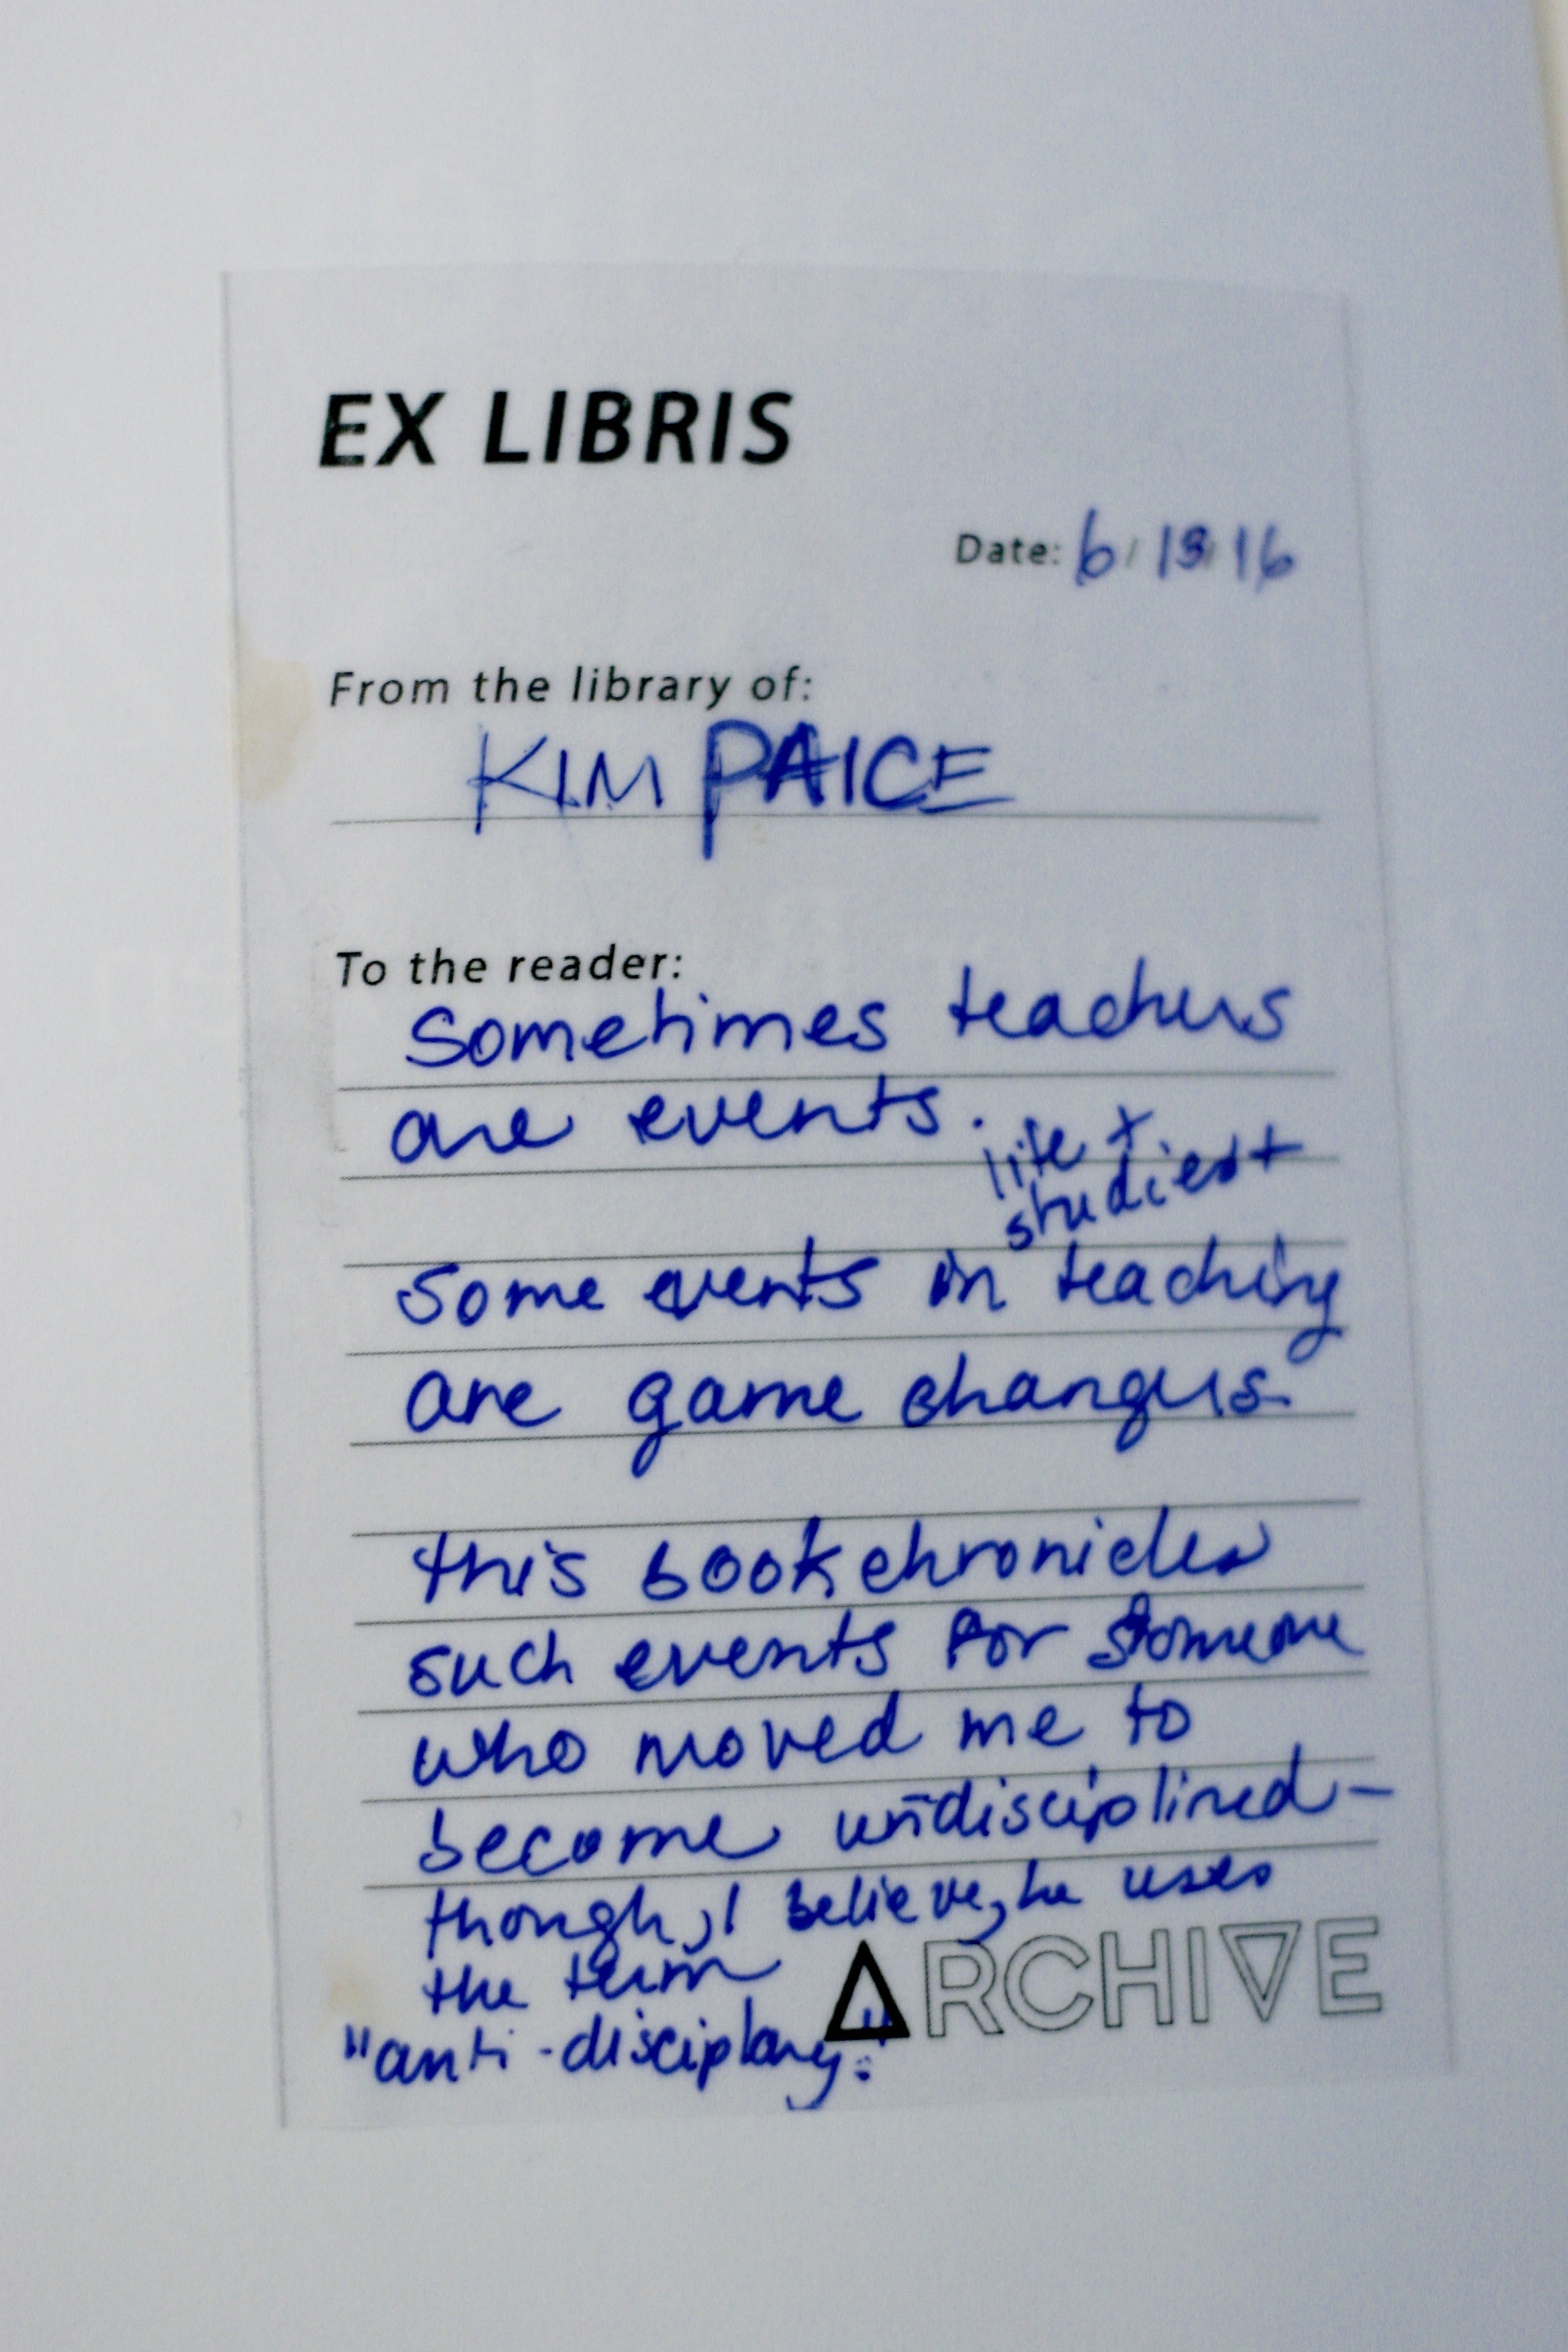 EX LIBRIS
Date: 6/13/16
From the library of:
KIM PAICE
To the reader:
Sometimes teachers
are events.
life +
studies +
Some events in teaching
are game changers.
this book chronicles
such events for someone
who moved me to
become undisciplined –
though, I believe, he uses
the term
"anti-disciplary."
ARCHIVE